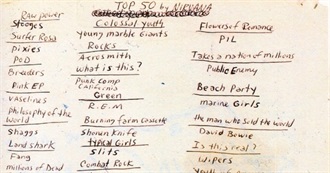 TOP 50 by NIRVANA
Raw power
Stooges
Surfer Rosa
Pixies
Pod
Breeders
Pink EP
Vaselines
Philosophy of the world
Shaggs
Land shark
Fang
millions of Dead
Colossal youth
Young marble Giants
Rocks
Aerosmith
what is this?
Punk comp
California
Green
R.E.M
Burning farm cassette
Shonen Knife
Typical Girls
Slits
Combat Rock
Flowers of Romance
PIL
Takes a nation of millions
Public Enemy
Beach Party
marine Girls
the man who sold the world
David Bowie
Is this real?
wipers